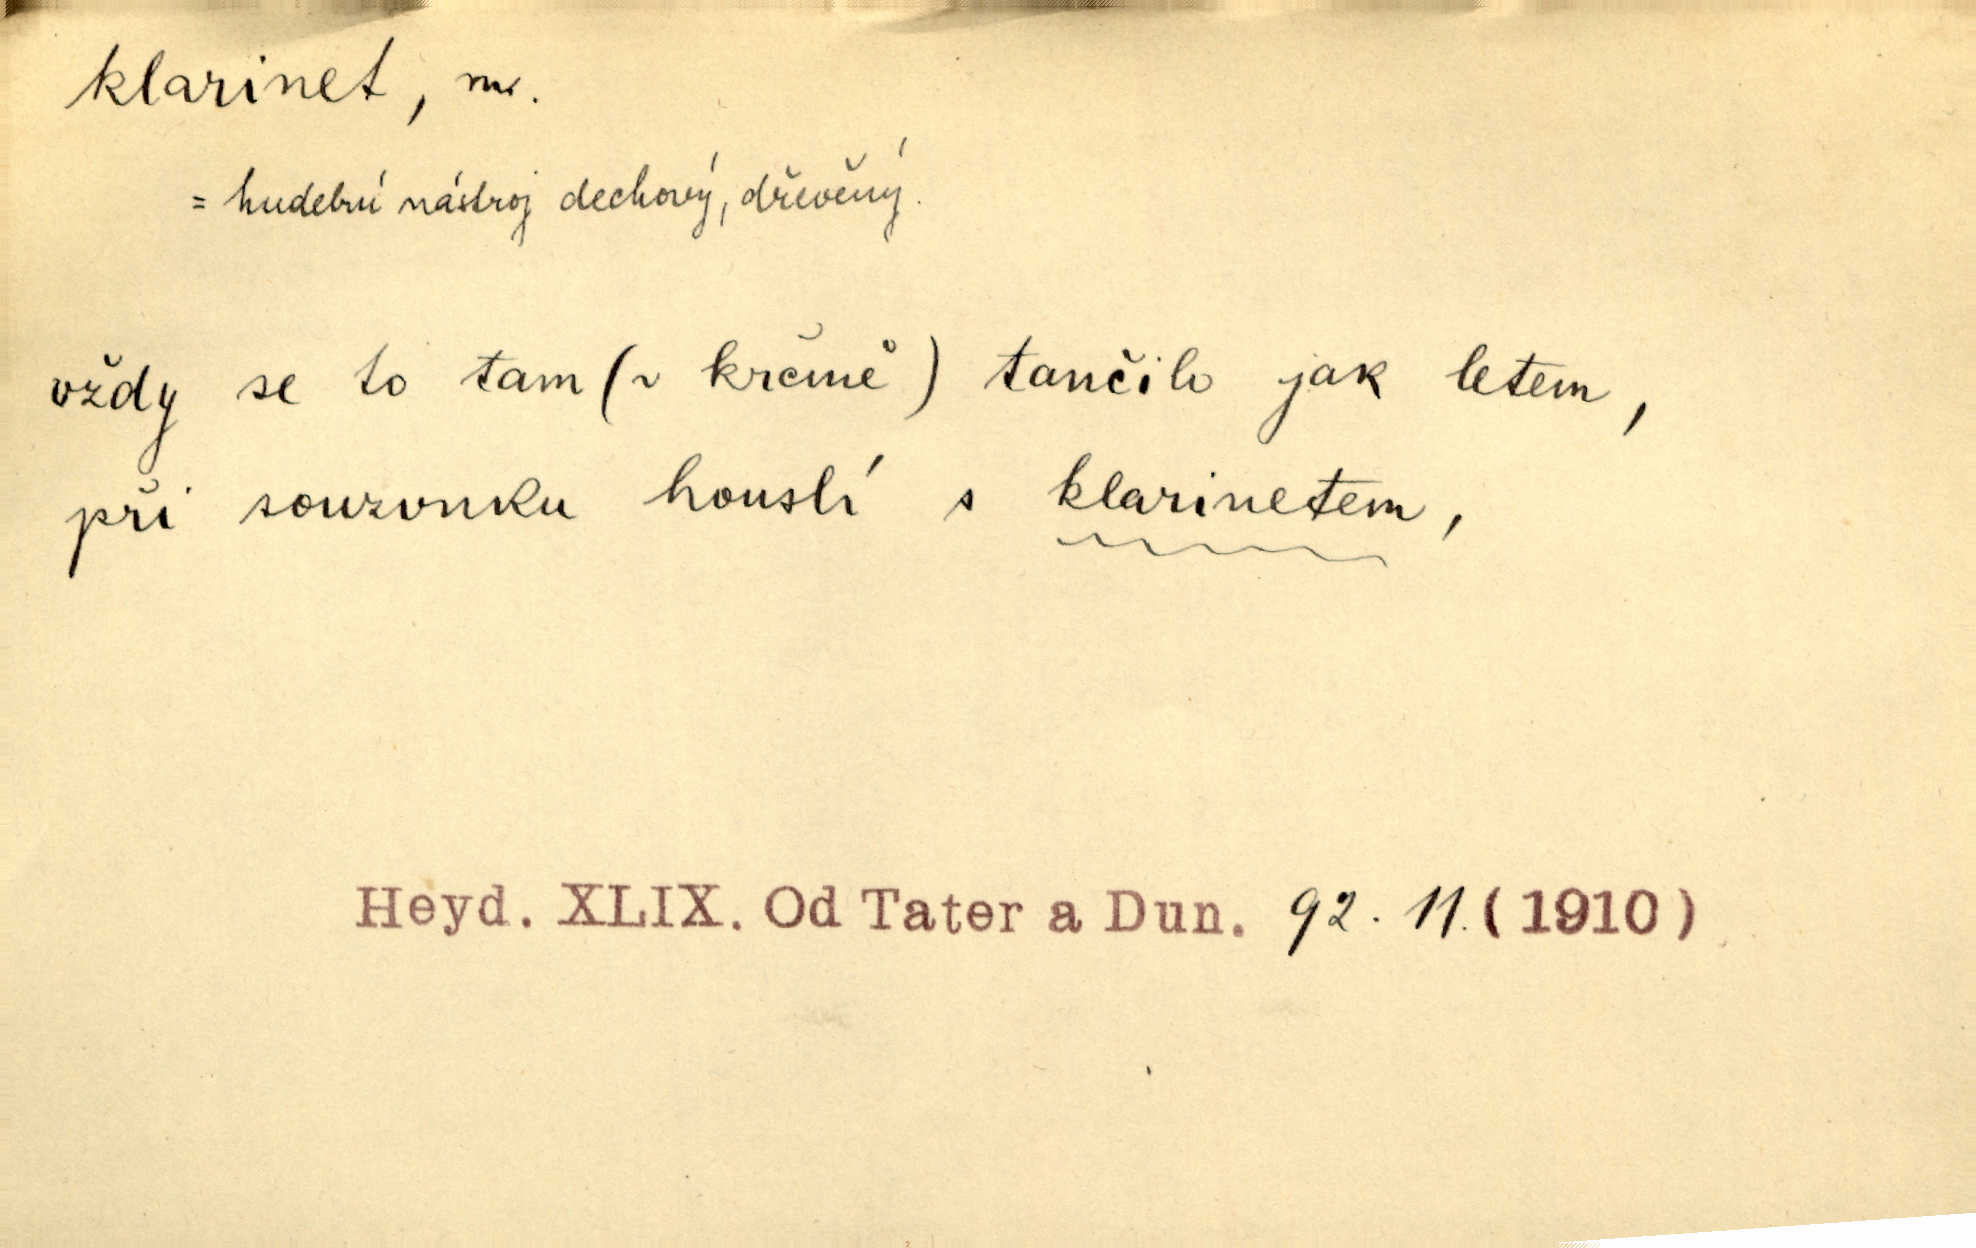 klarinet, m.
= hudební nástroj dechový, dřevěný.
vždy se to tam (v krčmě) tančilo jak letem,
při souzvuku houslí s klarinetem,
Heyd. XLIX. Od Tater a Dun. 92. 11. (1910)